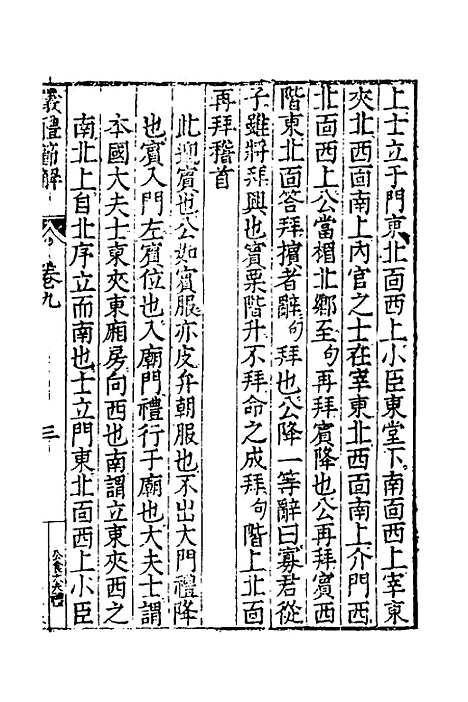 上士立于門東北面西上小臣東堂下南面西上宰東
夾北西面南上內官之士在宰東北西面南上介門西
北面西上公當楣北鄉至句再拜賓降也公再拜賓西
階東北面答拜擯者辭句拜也公降一等辭曰寡君從
子雖將拜興也賓栗階升不拜命之成拜句階上北面
再拜稽首
此迎賓也公如賓服亦皮弁朝服也不出大門禮降
也賓入門左賓位也入廟門禮行于廟也大夫士謂
本國大夫士東夾東廂房向西也南謂立東夾西之
南北上自北序立而南也士立門東北面西上小臣
儀禮節解
卷九
三
公食大夫禮